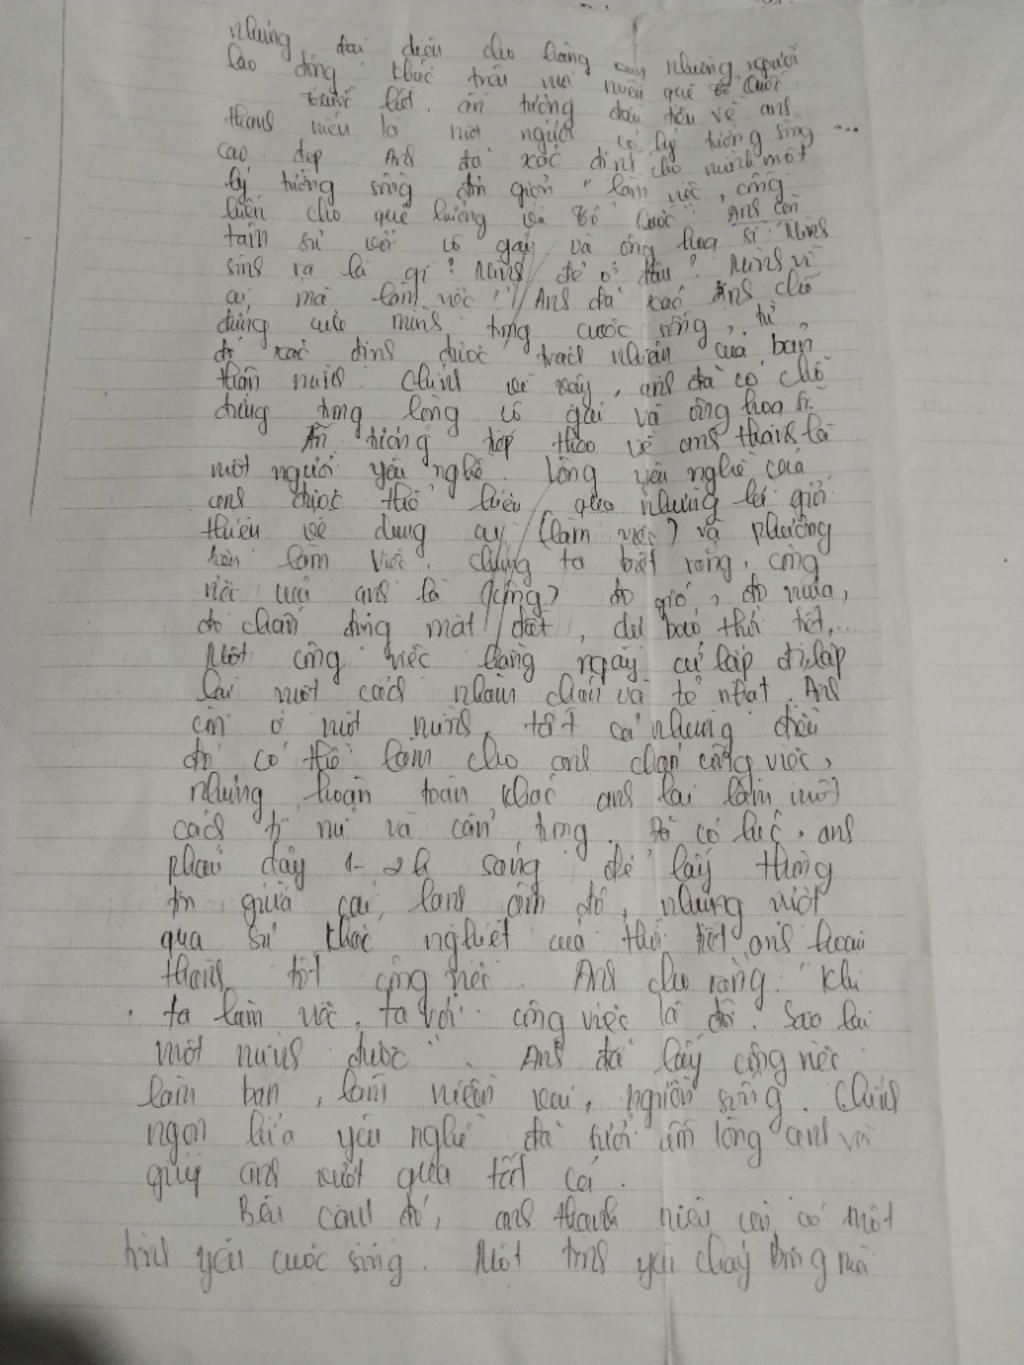 nhưng đại diện cho hàng nhưng người
lao động khác trên mọi miền quê Tổ Quốc.
Trước hết, ấn tượng đầu tiên về anh
thanh niên là một người có lý tưởng sống
cao đẹp. Anh đã xác định cho mình một
lý tưởng sống đơn giản "làm việc, cống
hiến cho quê hương và Tổ Quốc" Anh còn
tâm sự với cô gái và ông hoạ sĩ: "Mình
sinh ra là gì? Mình đẻ ở đâu? Mình vì
ai mà làm việc?" Anh đã xác định chỗ
đứng của mình trong cuộc sống, từ
đó xác định được trách nhiệm của bản
thân mình. Chính vì vậy, anh đã có chỗ
đứng trong lòng cô gái và ông hoạ sĩ.
Ấn tượng tiếp theo về anh thanh là
một người yêu nghề. Lòng yêu nghề của
anh được thể hiện qua những lời giới
thiệu về dụng cụ (làm việc) và phương
tiện làm việc. Chúng ta biết rằng, công
việc của anh là (từng) đo gió, đo mưa,
đo chấn động mặt đất, dự báo thời tiết,...
Một công việc hàng ngày cứ lặp đi lặp
lại một cách nhàm chán và tẻ nhạt. Anh
còn ở một mình, tất cả những điều
đó có thể làm cho anh chán công việc,
nhưng hoàn toàn khác anh lại làm một
cách tỉ mỉ và cẩn trọng. Đó có lúc, anh
phải dậy 1-2h sáng để lấy thông
tin giữa cái lạnh cóng đó, nhưng vượt
qua sự khắc nghiệt của thời tiết, anh hoàn
thành tốt công việc. Anh cho rằng: "Khi
ta làm việc, ta với công việc là đôi. Sao lại
một mình được". Anh đã lấy công việc
làm bạn, làm niềm vui, nguồn sống. Chính
ngọn lửa yêu nghề đã sưởi ấm lòng anh và
giúp anh vượt qua tất cả.
Bên cạnh đó, anh thanh niên còn có một
tình yêu cuộc sống. Một tình yêu cháy bỏng mà